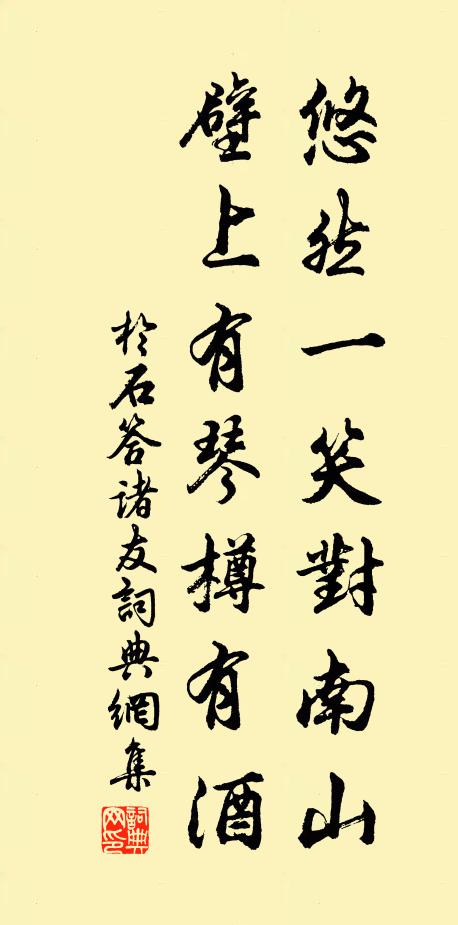 悠然一笑對南山
壁上有琴樽有酒
於石答諸友詞典網集
詞典網印